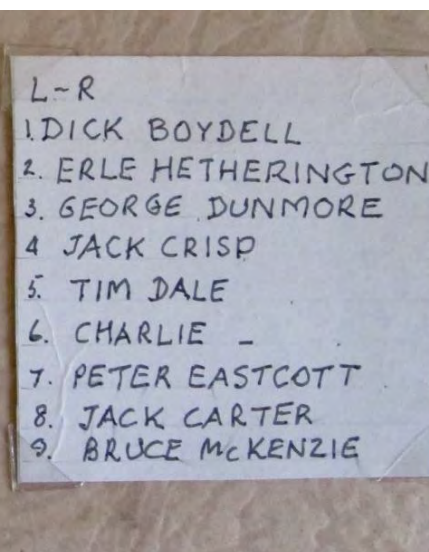 L-R
1. DICK BOYDELL
2. ERLE HETHERINGTON
3. GEORGE DUNMORE
4 JACK CRISP
5. TIM DALE
6. CHARLIE -
7. PETER EASTCOTT
8. JACK CARTER
9. BRUCE McKENZIE